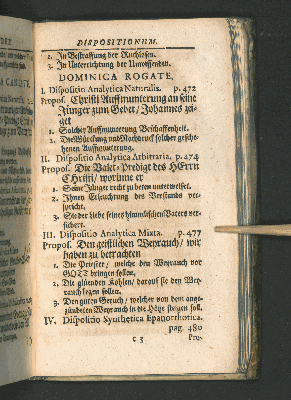 DISPOSITIONUM.
2. In Bestraffung der Ruchlosen.
3. In Unterrichtung der Unwissenden.
DOMINICA ROGATE,
I. Dispositio Analytica Naturalis. p. 472
Propos. Christi Auffmunterung an seine
Jünger zum Gebet / Johannes zei-
get
1. Solcher Auffmunterung Beschaffenheit.
2. Die Würckung und Nachdruck solcher gesche-
henen Auffmunterung.
II. Dispositio Analytica Arbitraria. p. 474
Propos. Die Valet-Predigt des HErrn
Christi / worinne er
1. Seine Jünger recht zu beten unterweiset.
2. Ihnen Erleuchtung des Verstands ver-
spricht.
3. Sie der Liebe seines himmlischen Vaters ver-
sichert.
III. Dispositio Analytica Mixta. p. 477
Propos. Den geistlichen Weyrauch / wir
haben zu betrachten
1. Die Priester / welche den Weyrauch vor
GOTT bringen sollen.
2. Die glüenden Kohlen / darauf sie den Wey-
rauch legen sollen.
3. Den guten Geruch / welcher von dem ange-
zündeten Weyrauch in die Höhe steigen soll.
IV. Dispositio Synthetica Epanorthotica.
pag. 480
c 3 Pro-